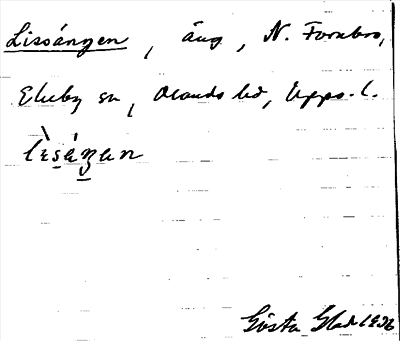 Lissängen, äng, N. Fornbro,
Ekeby sn, Olands hd, Upps. l.
Gösta Glad 1936